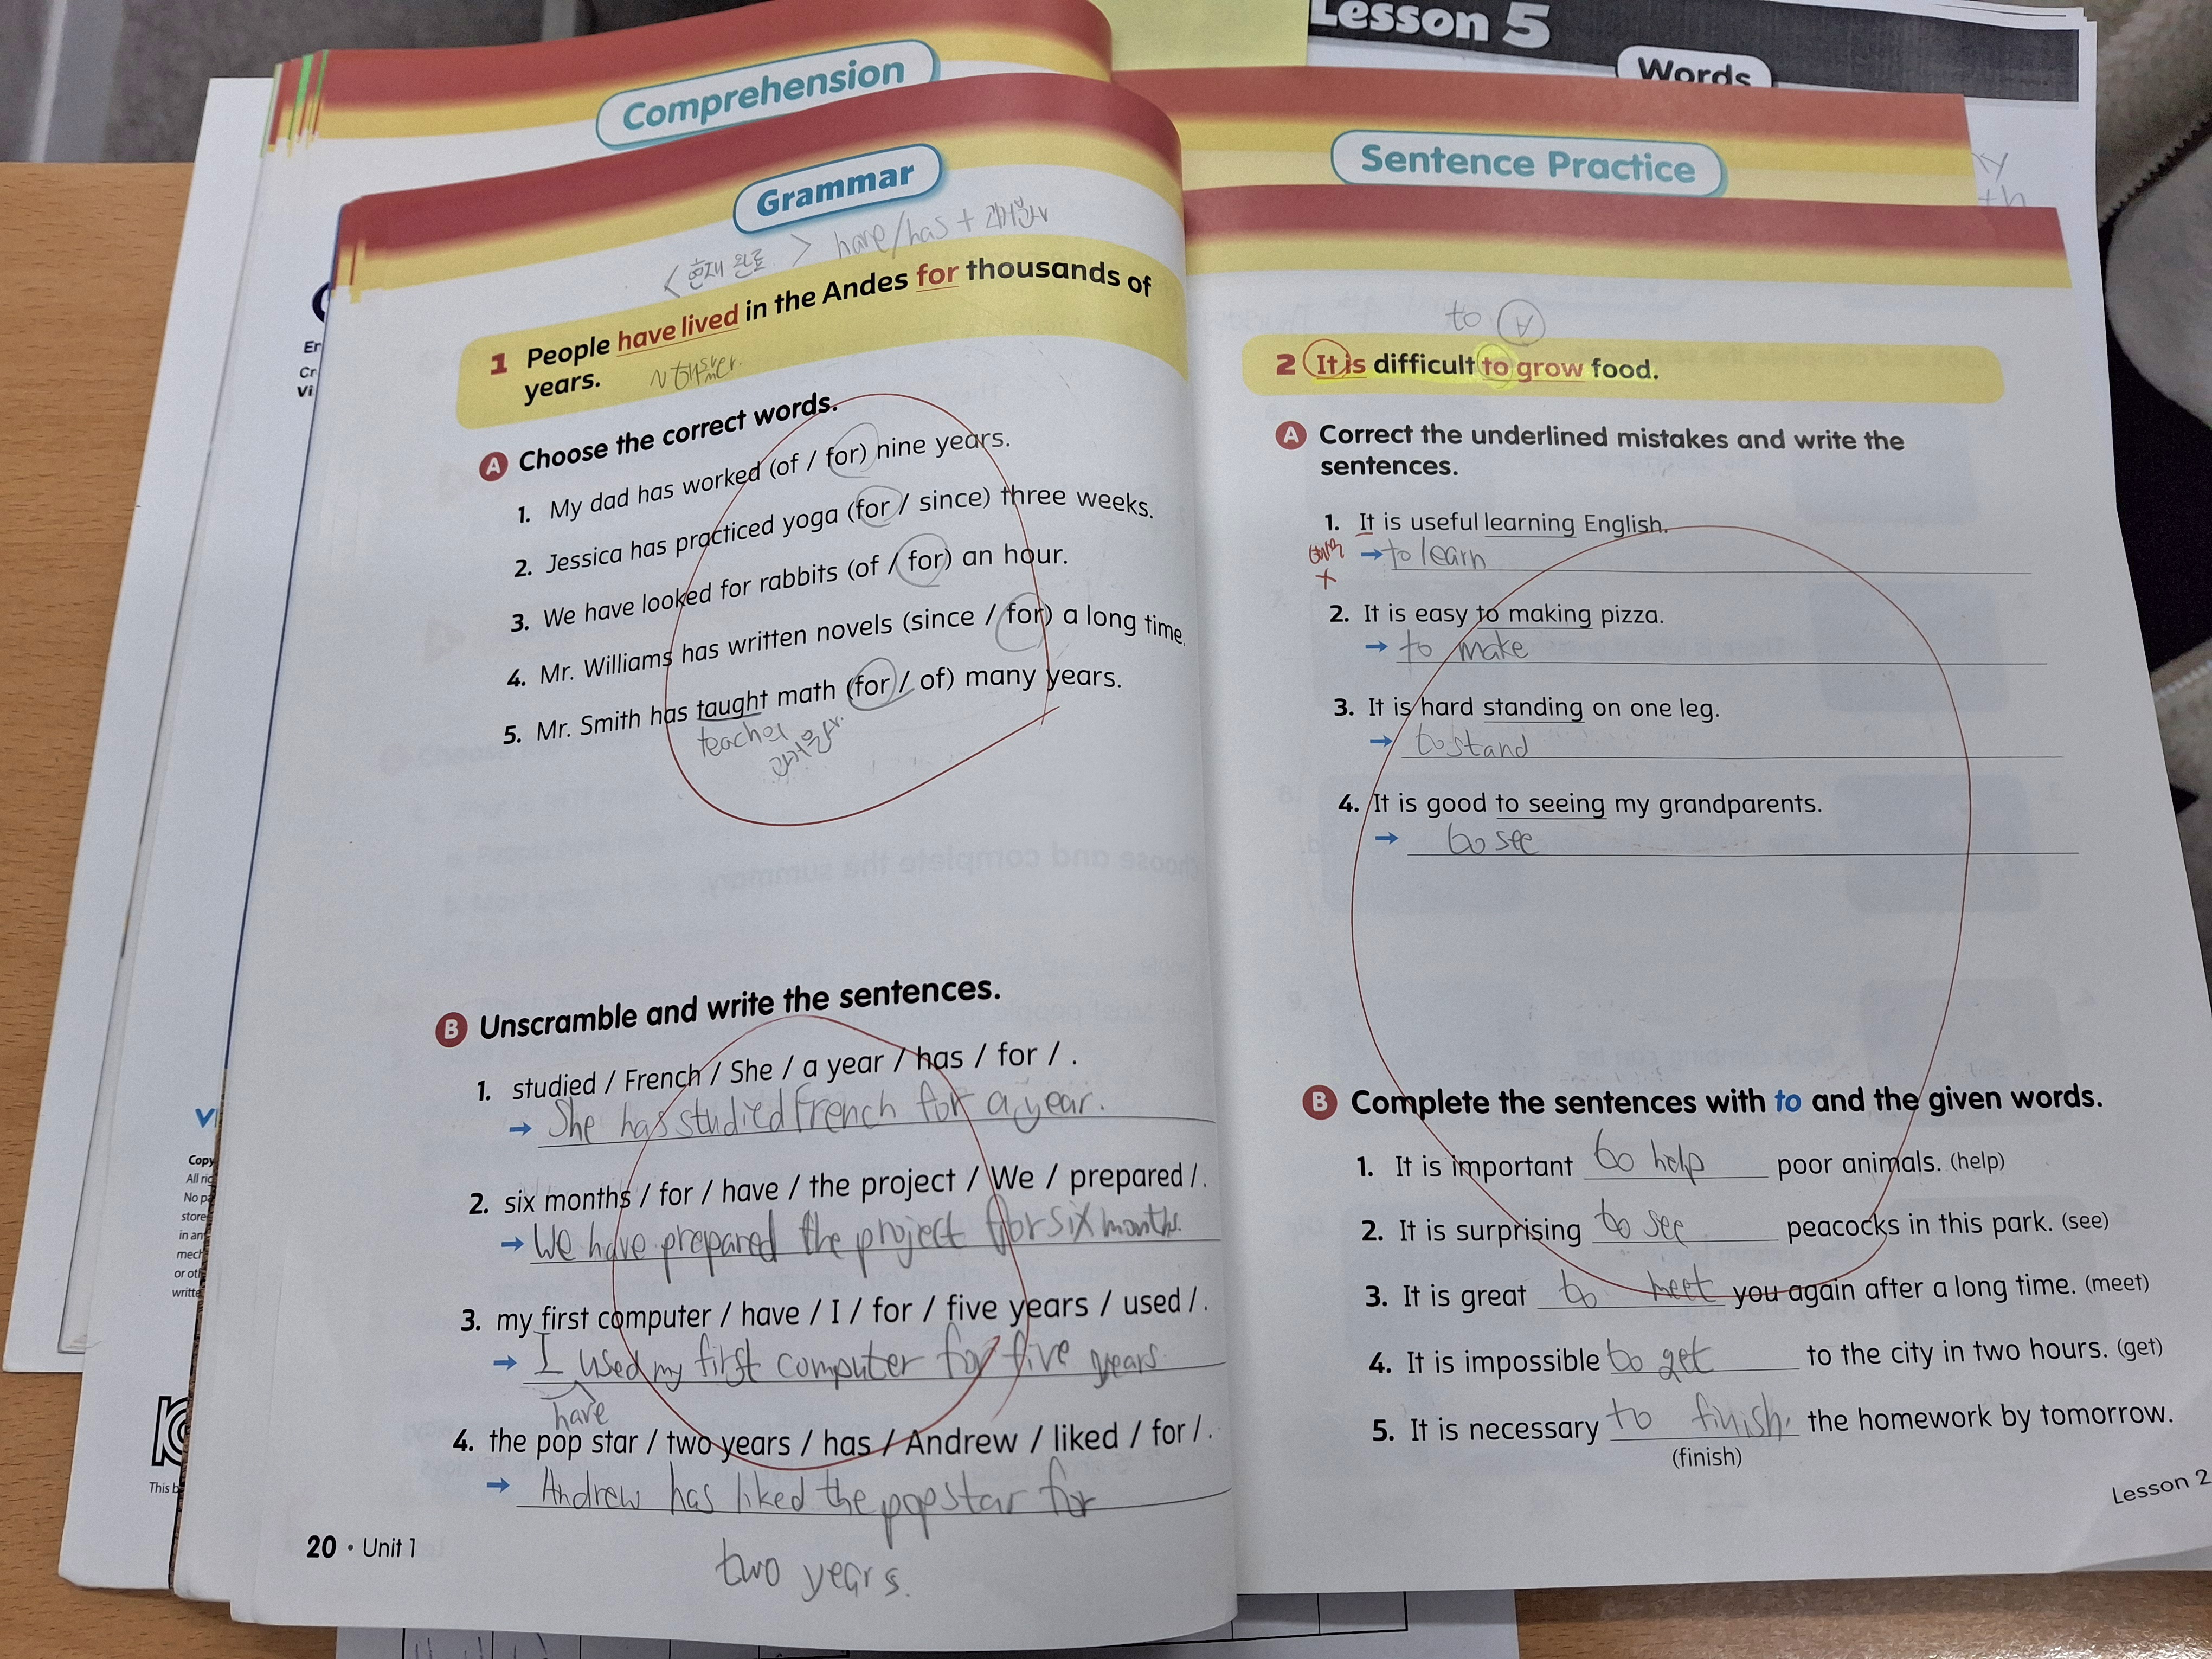 Lesson 5
Words
Comprehension
Sentence Practice
Grammar
<현재 완료> have/has + 과거분사
1 People have lived in the Andes for thousands of
years. ~동안
A Choose the correct words.
1. My dad has worked (of / for) nine years.
2. Jessica has practiced yoga (for / since) three weeks.
3. We have looked for rabbits (of / for) an hour.
4. Mr. Williams has written novels (since / for) a long time.
5. Mr. Smith has taught math (for / of) many years.
B Unscramble and write the sentences.
1. studied / French / She / a year / has / for / .
→ She has studied French for a year.
2. six months / for / have / the project / We / prepared / .
→ We have prepared the project for six months.
3. my first computer / have / I / for / five years / used / .
→ I used my first computer for five years.
have
4. the pop star / two years / has / Andrew / liked / for / .
→ Andrew has liked the pop star for
two years.
20 • Unit 1
to Ⓥ
2 It is difficult to grow food.
A Correct the underlined mistakes and write the
sentences.
1. It is useful learning English.
→ to learn
X
2. It is easy to making pizza.
→ to make
3. It is hard standing on one leg.
→ to stand
4. It is good to seeing my grandparents.
→ to see
B Complete the sentences with to and the given words.
1. It is important to help poor animals. (help)
2. It is surprising to see peacocks in this park. (see)
3. It is great to meet you again after a long time. (meet)
4. It is impossible to get to the city in two hours. (get)
5. It is necessary to finish the homework by tomorrow.
(finish)
Lesson 2